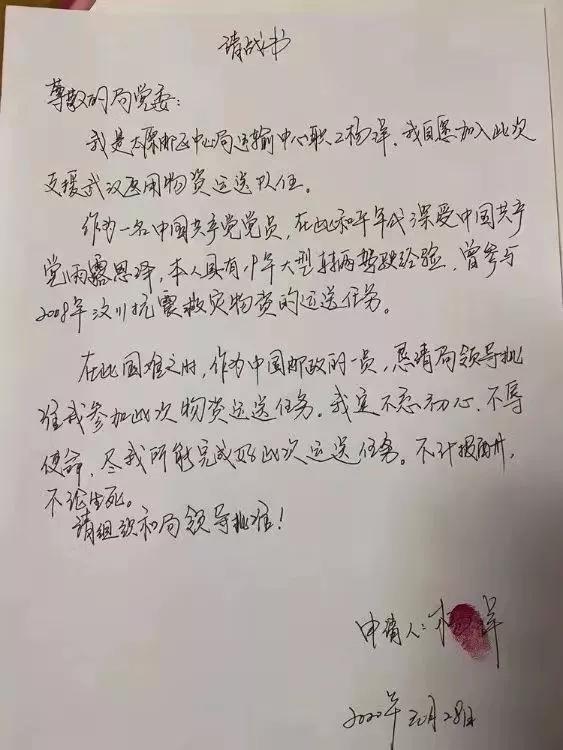 请战书
尊敬的局党委：
我是太原邮区中心局运输中心职工杨洋，我自愿加入此次
支援武汉医用物资运送队伍。
作为一名中国共产党党员，在此和平年代深受中国共产
党雨露恩泽，本人具有十年大型车辆驾驶经验，曾参与
2008年汶川抗震救灾物资的运送任务。
在此国难之时，作为中国邮政的一员，恳请局领导批
准我参加此次物资运送任务。我定不忘初心，不辱
使命，尽我所能完成好此次运送任务。不计报酬，
不论生死。
请组织和局领导批准！
申请人：杨洋
2020年元月28日